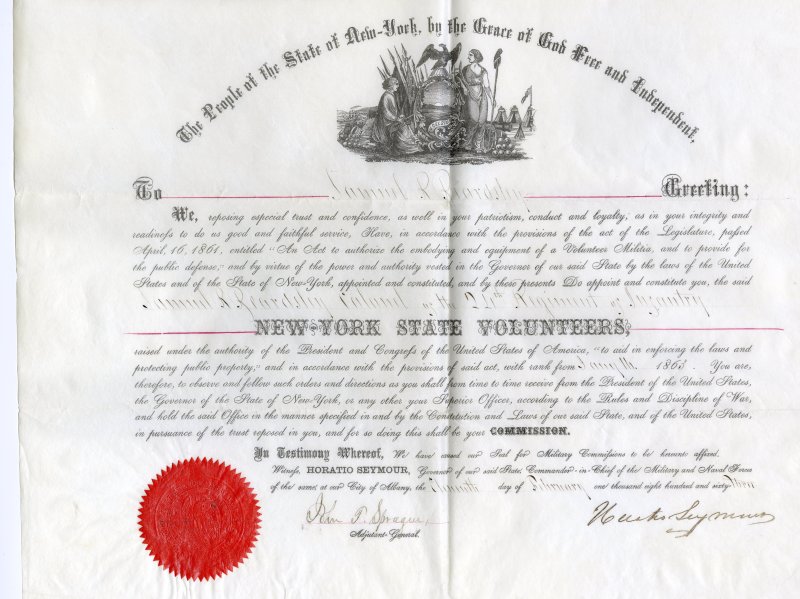 The People of the State of New-York, by the Grace of God Free and Independent,
To Samuel R Beardsley Greeting:
We, reposing especial trust and confidence, as well in your patriotism, conduct and loyalty, as in your integrity and
readiness to do us good and faithful service, Have, in accordance with the provisions of the act of the Legislature, passed
April, 16, 1861, entitled "An Act to authorize the embodying and equipment of a Volunteer Militia, and to provide for
the public defense," and by virtue of the power and authority vested in the Governor of our said State by the laws of the United
States and of the State of New-York, appointed and constituted, and by these presents Do appoint and constitute you, the said
Samuel R Beardsley Colonel of the 24th Regiment of Infantry
NEW-YORK STATE VOLUNTEERS,
raised under the authority of the President and Congress of the United States of America, "to aid in enforcing the laws and
protecting public property," and in accordance with the provisions of said act, with rank from 1863. You are,
therefore, to observe and follow such orders and directions as you shall from time to time receive from the President of the United States,
the Governor of the State of New-York, or any other your Superior Officer, according to the Rules and Discipline of War,
and hold the said Office in the manner specified in and by the Constitution and Laws of our said State, and of the United States,
in pursuance of the trust reposed in you, and for so doing this shall be your COMMISSION.
In Testimony Whereof, We have caused our Seal for Military Commissions to be hereunto affixed.
Witness, HORATIO SEYMOUR, Governor of our said State, Commander-in-Chief of the Military and Naval Forces
of the same, at our City of Albany, the day of February one thousand eight hundred and sixty-three
John T. Sprague
Horatio Seymour
Adjutant-General.